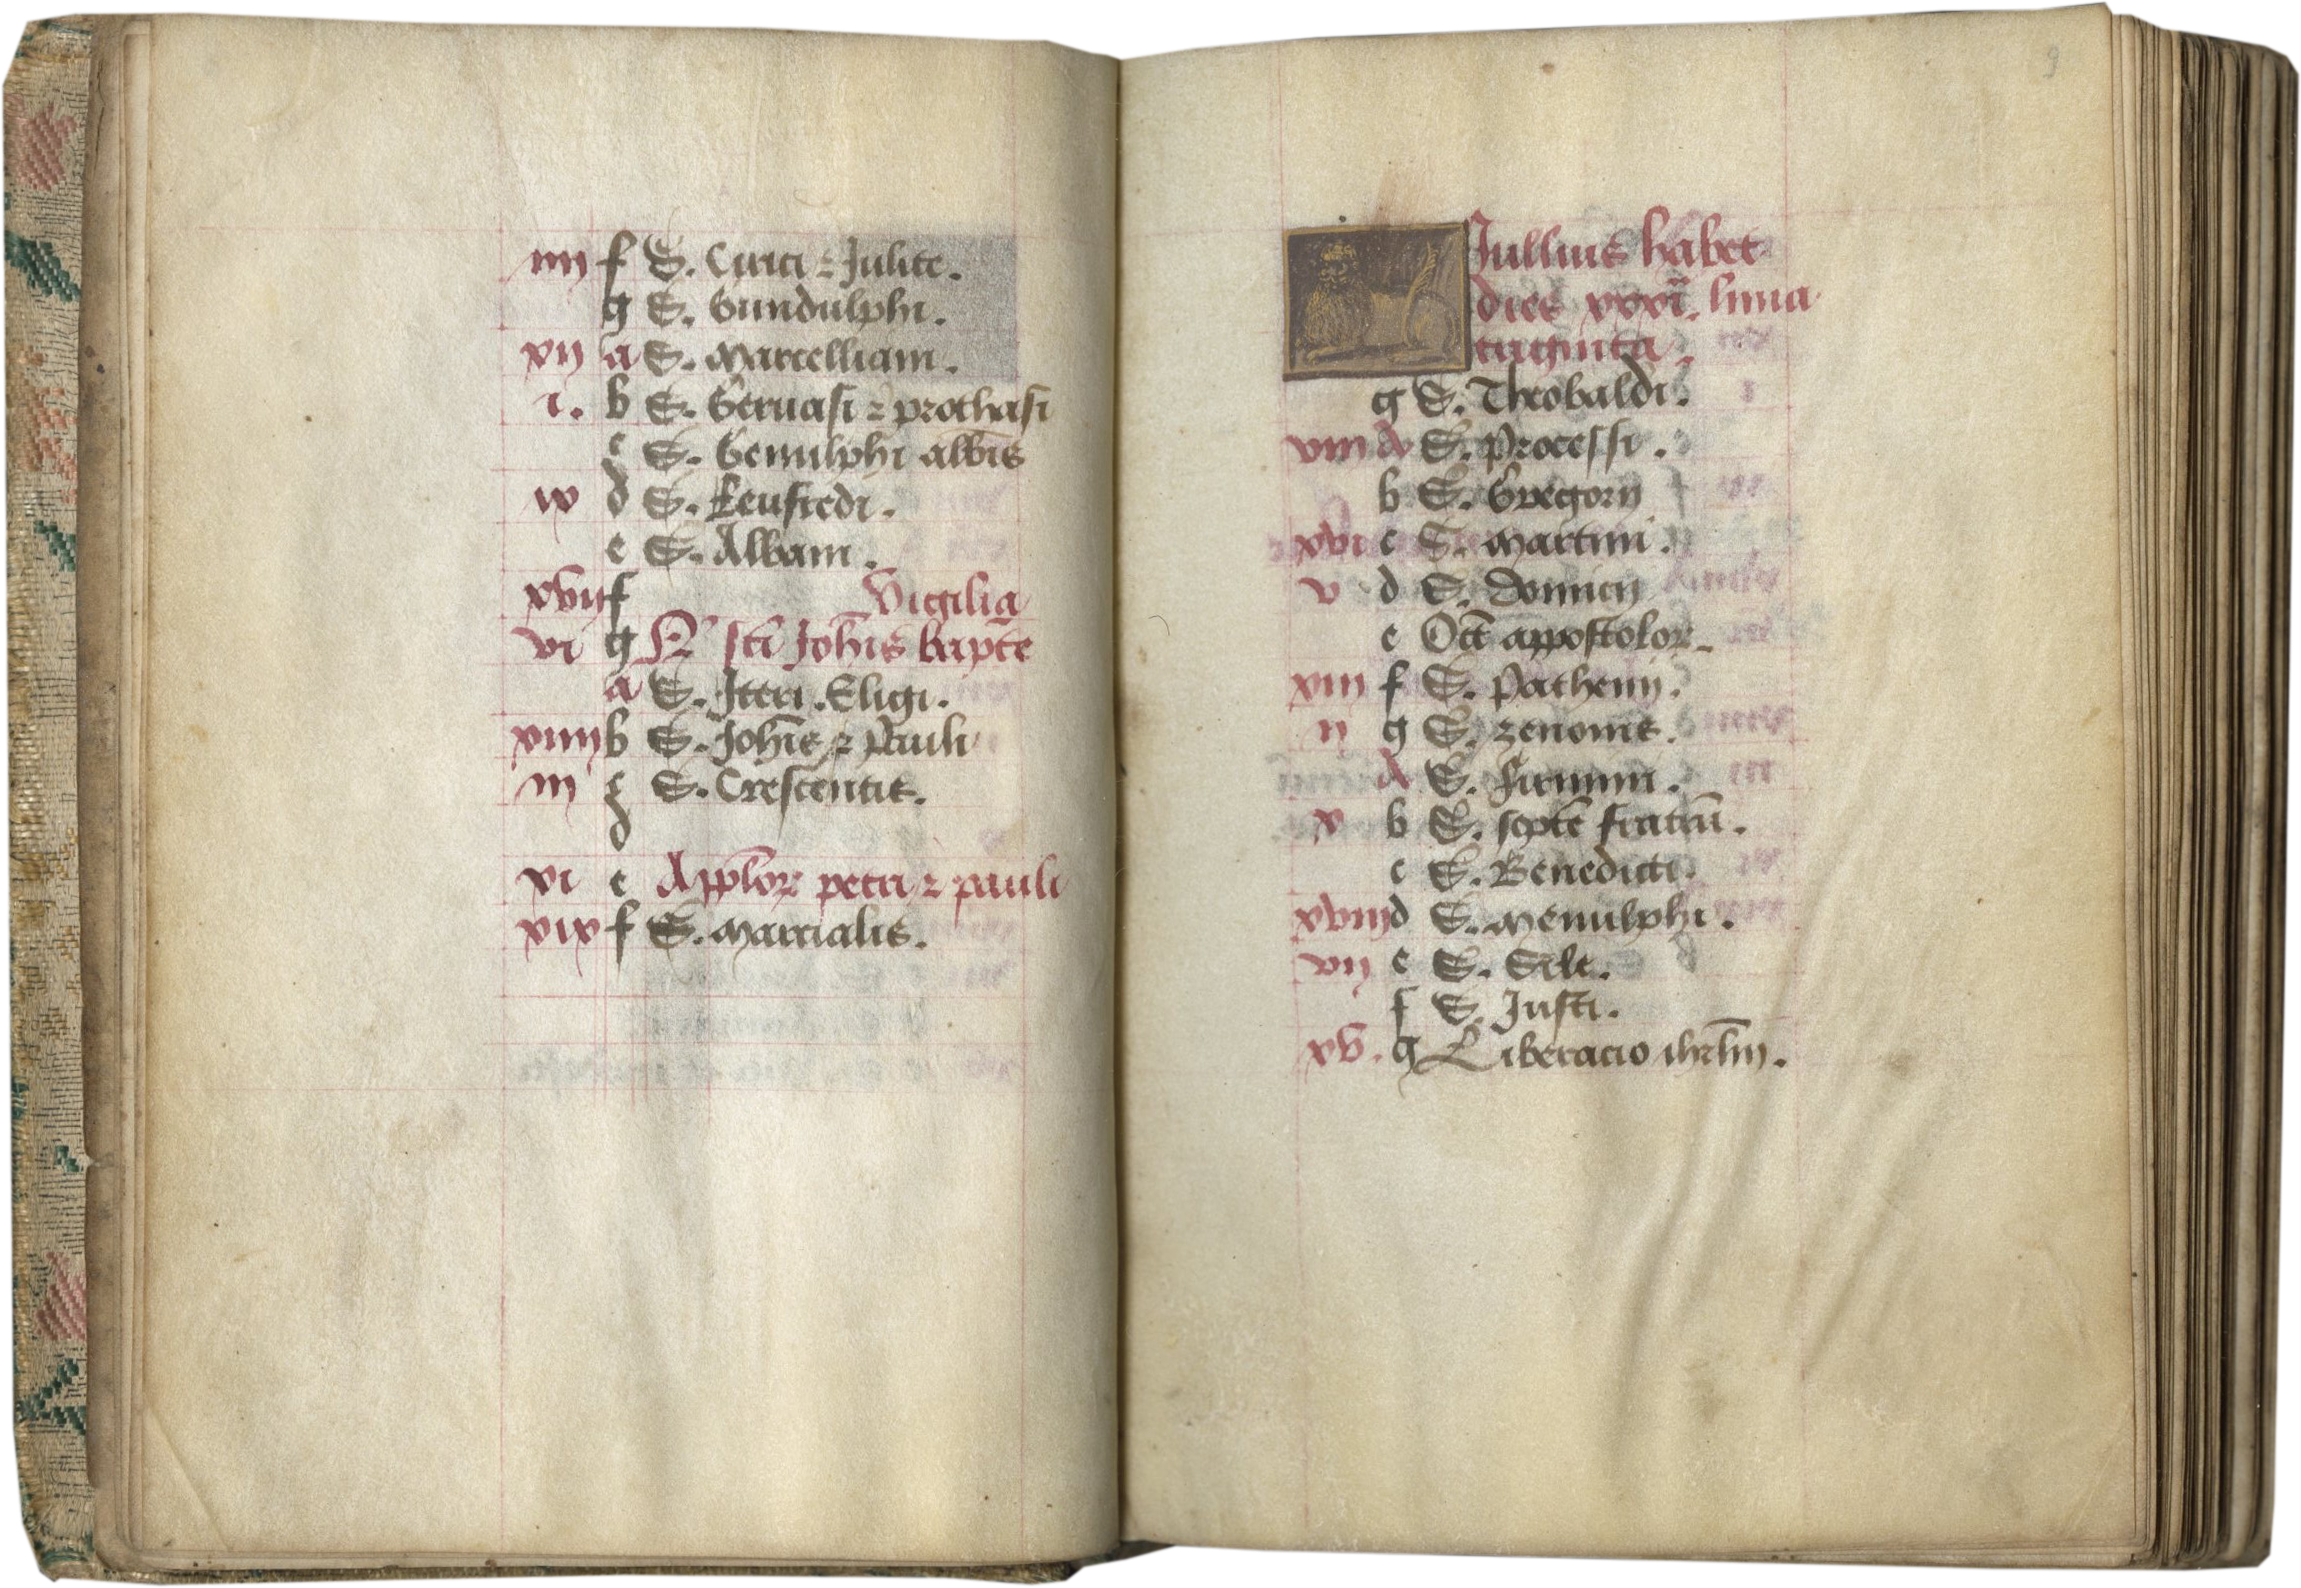 iiij f S. Cirici ⁊ Julite.
g S. Gundulphi.
xij a S. Marcelliani.
i. b S. Geruasi ⁊ prothasi
c S. Genulphi albis
ix d S. Leufredi.
e S. Albani.
xvij f Vigilia
vi g N sti Johis bapte
a S. Iteri. Eligi.
xiiij b S. Johis ⁊ Pauli
iij c S. Crescentis.
d
xi e Applor petri ⁊ pauli
xix f S. Marcialis.
9
Jullius habet
dies xxxi. luna
triginta.
g S. Theobaldi.
viii A S. Processi.
b S. Gregorij
xvi c S. Martini.
v d S. Domicij
e Oct appostolor.
xiii f S. Pathenij.
ij g S. zenonis.
A S. Firmini.
x b S. septe fratru.
c S. Benedicti.
xviij d S. Menulphi.
vij e S. Sile.
f S. Justi.
xv. g Liberacio ihrlm.